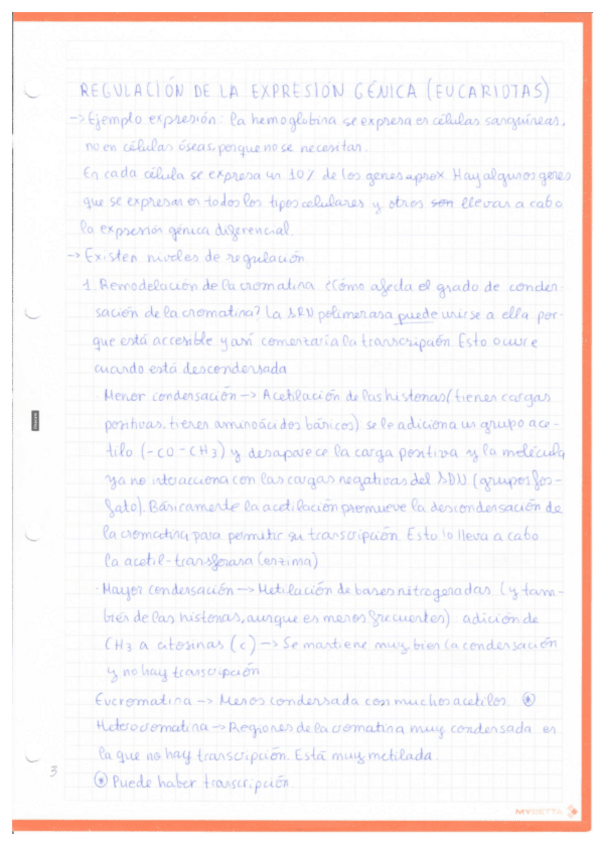 REGULACIÓN DE LA EXPRESIÓN GÉNICA (EUCARIOTAS)
-> Ejemplo expresión: la hemoglobina se expresa en células sanguíneas,
no en células óseas, porque no se necesitan.
En cada célula se expresa un 10% de los genes aprox. Hay algunos genes
que se expresan en todos los tipos celulares y otros son llevan a cabo
la expresión génica diferencial.
-> Existen niveles de regulación
1. Remodelación de la cromatina ¿Cómo afecta el grado de conden-
sación de la cromatina? La ARN polimerasa puede unirse a ella por-
que está accesible y así comenzaría la transcripción. Esto ocurre
cuando está descondensada
Menor condensación -> Acetilación de las histonas (tienen cargas
positivas, tienen aminoácidos básicos) se le adiciona un grupo ace-
tilo (-CO-CH3) y desaparece la carga positiva y la molécula
ya no interacciona con las cargas negativas del ADN (grupos fos-
fato). Básicamente la acetilación promueve la descondensación de
la cromatina para permitir su transcripción. Esto lo lleva a cabo
la acetil-transferasa (enzima)
· Mayor condensación -> Metilación de bases nitrogenadas (y tam-
bién de las histonas, aunque es menos frecuentes) adición de
CH3 a citosinas (C) -> Se mantiene muy bien la condensación
y no hay transcripción
Eucromatina -> Menos condensada con muchos acetilos. *
Heterocromatina -> Regiones de la cromatina muy condensada en
la que no hay transcripción. Está muy metilada.
* Puede haber transcripción
3